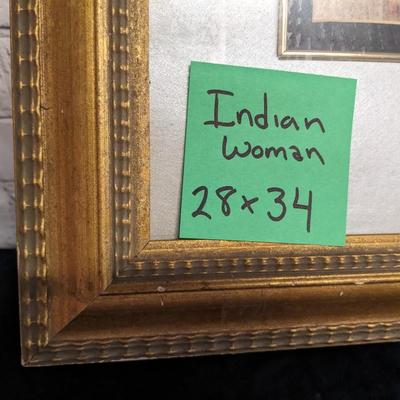 Indian
Woman
28 x 34